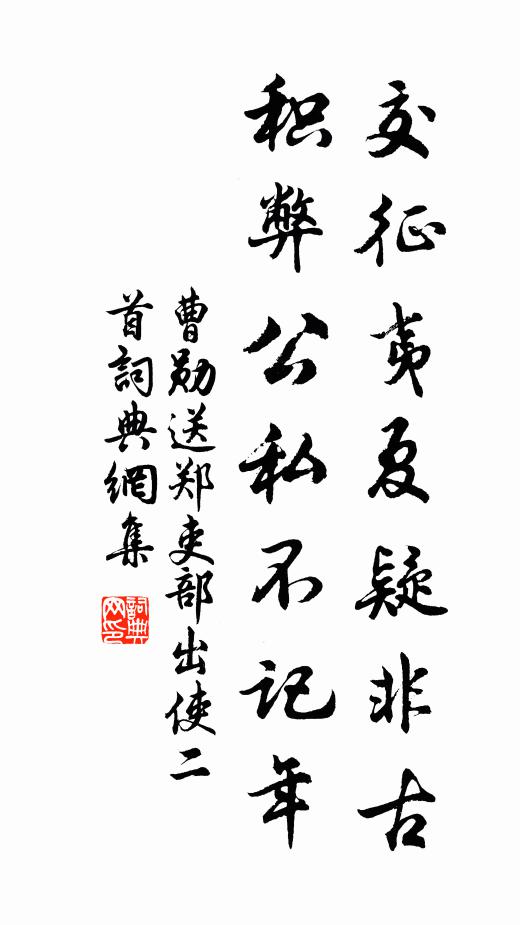 交征夷夏疑非古
积弊公私不记年
曹勋送郑吏部出使二
首詞典網集
詞典网印